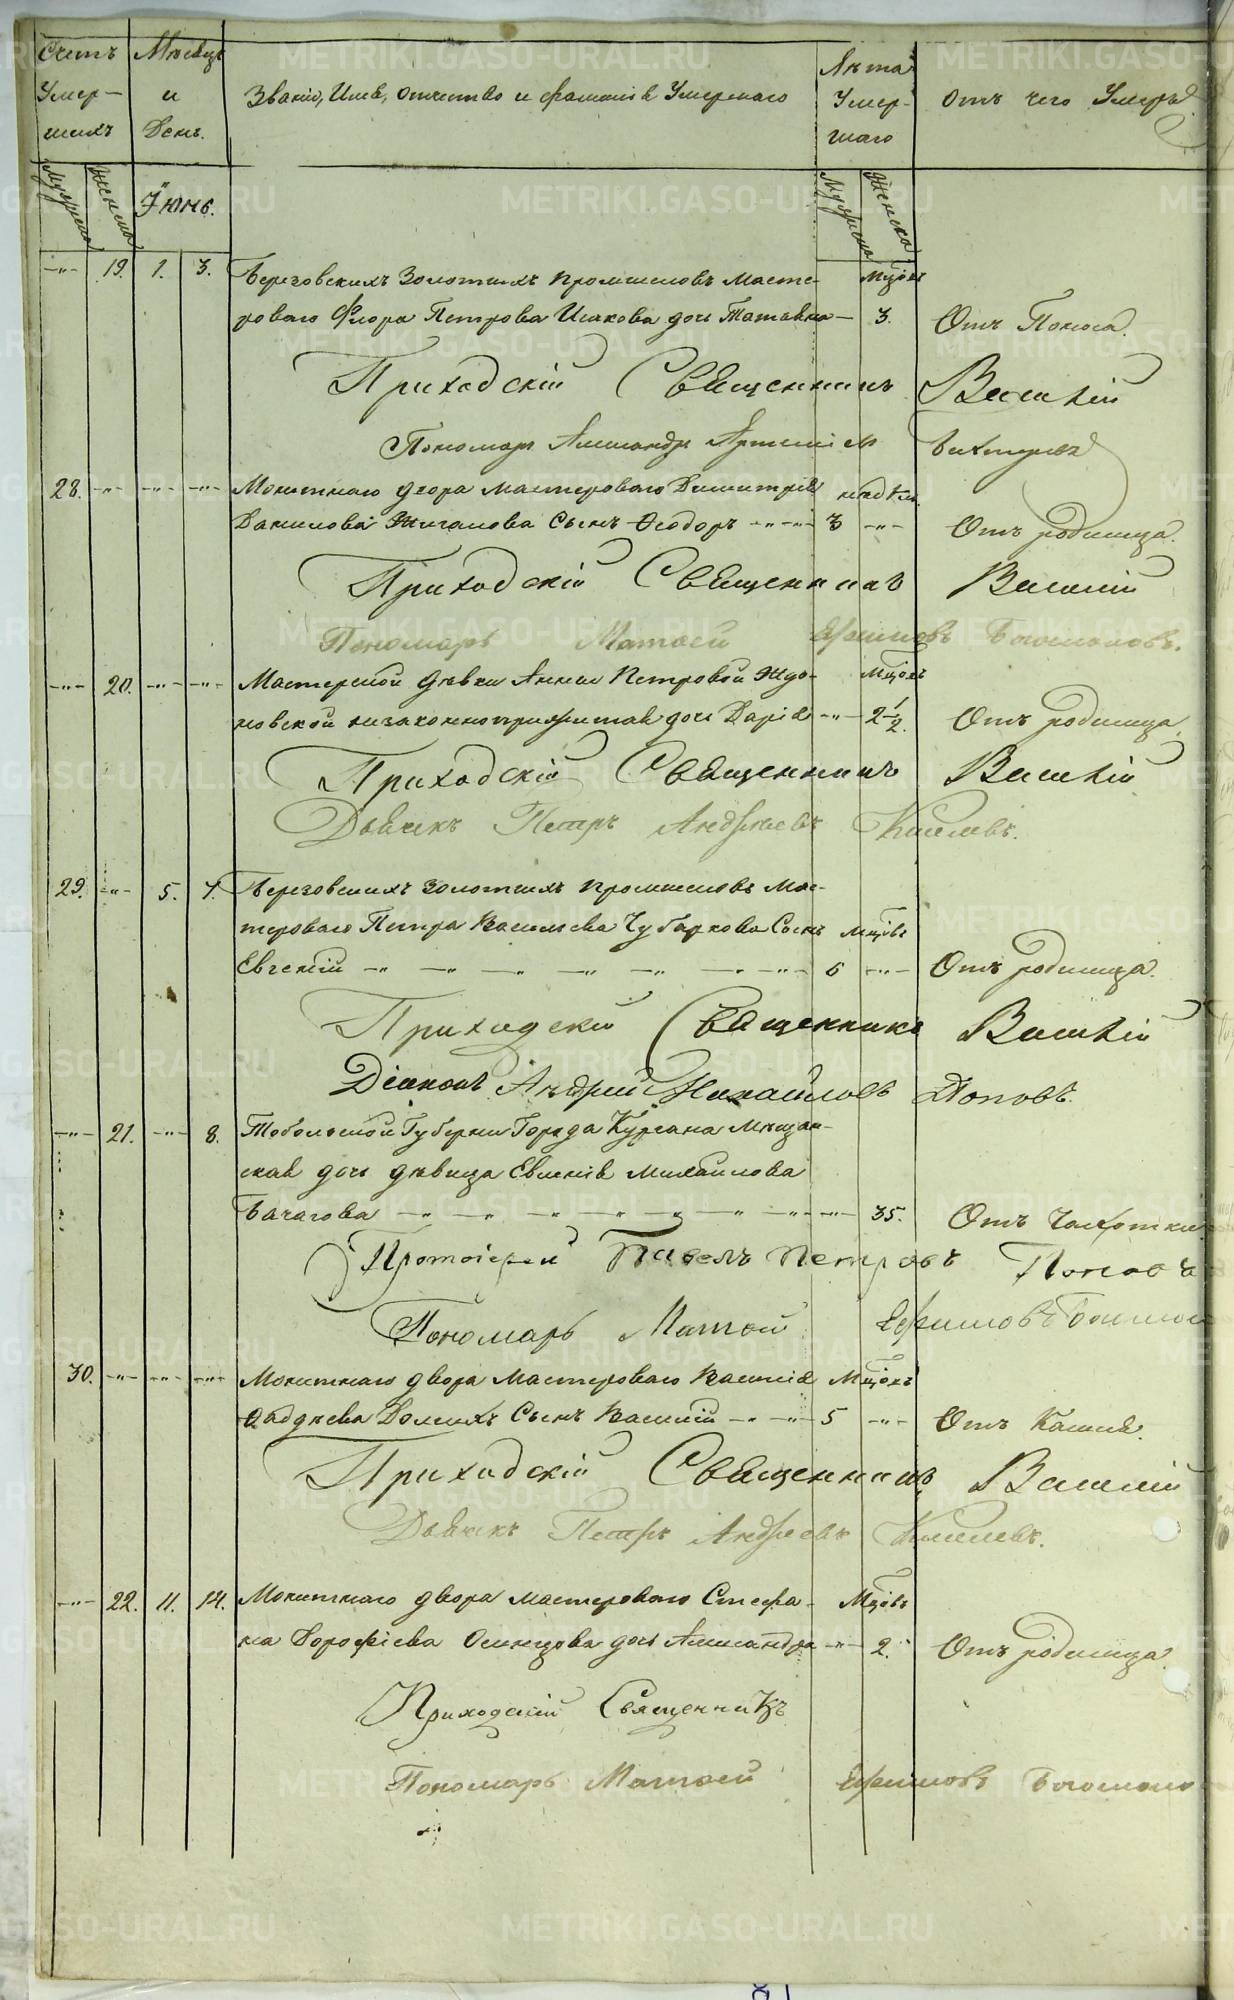 Счетъ Умер-шихъ
Мѣсяцъ и День.
Званіе, Имя, Отчество и фамилія Умершаго
Лѣта Умер-шаго
Отъ чего Умеръ
Мужеска Женска
Іюнь.
Мужеска Женска
19. 1. 3. Березовскихъ Золотыхъ промысловъ Масте- Мцовъ
роваго Флора Петрова Исакова дочь Татьяна — 3. Отъ Поноса.
Приходскій Священникъ Василій
Пономарь Александръ
28. Монетнаго двора мастероваго Димитрія недѣль
Данилова Жиганова Сынъ Ѳеодоръ 3 Отъ родимца.
Приходскій Священникъ Василій
Пономарь Матѳей Ефимовъ Богомоловъ.
20. Мастерской дѣвки Анны Петровой Мцовъ
новской незаконноприжитая дочь Дарія 2 1/2. Отъ родимца.
Приходскій Священникъ Василій
Дьячекъ Петръ Андреевъ Киселевъ.
29. 5. 7. Березовскихъ золотыхъ промысловъ Мас-
тероваго Петра Васильева Чубаркова Сынъ Мцовъ
Евгеній 6 Отъ родимца.
Приходскій Священникъ Василій
Діаконъ Андрей Михайловъ Поповъ.
21. 8. Тобольской Губерніи Города Кургана Мѣщан-
ская дочь дѣвица Евгенія Михайлова
Бачагова 35. Отъ Чахотки
Протоіерей Павелъ Петровъ Поповъ
Пономарь Матѳей Ефимовъ
30. Монетнаго двора мастероваго Василія Мцовъ
Ѳаддѣева Долгихъ Сынъ Василій 5 Отъ Кашля.
Приходскій Священникъ Василій
Дьячекъ Петръ Андреевъ Киселевъ.
22. 11. 14. Монетнаго двора мастероваго Стефа- Мцовъ
на Дорофѣева Осинцова дочь Александра 2. Отъ родимца.
Приходскій Священникъ
Пономарь Матѳей Ефимовъ Богомоло
METRIKI.GASO-URAL.RU